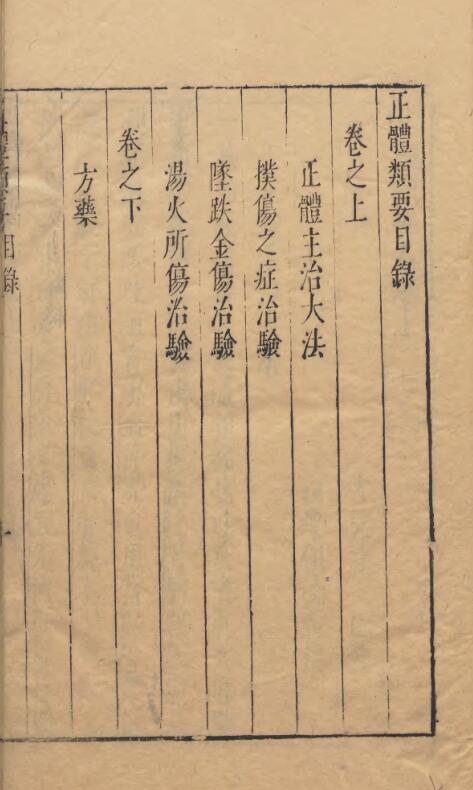 正體類要目錄
卷之上
正體主治大法
撲傷之症治驗
墜跌金傷治驗
湯火所傷治驗
卷之下
方藥
正體類要目錄